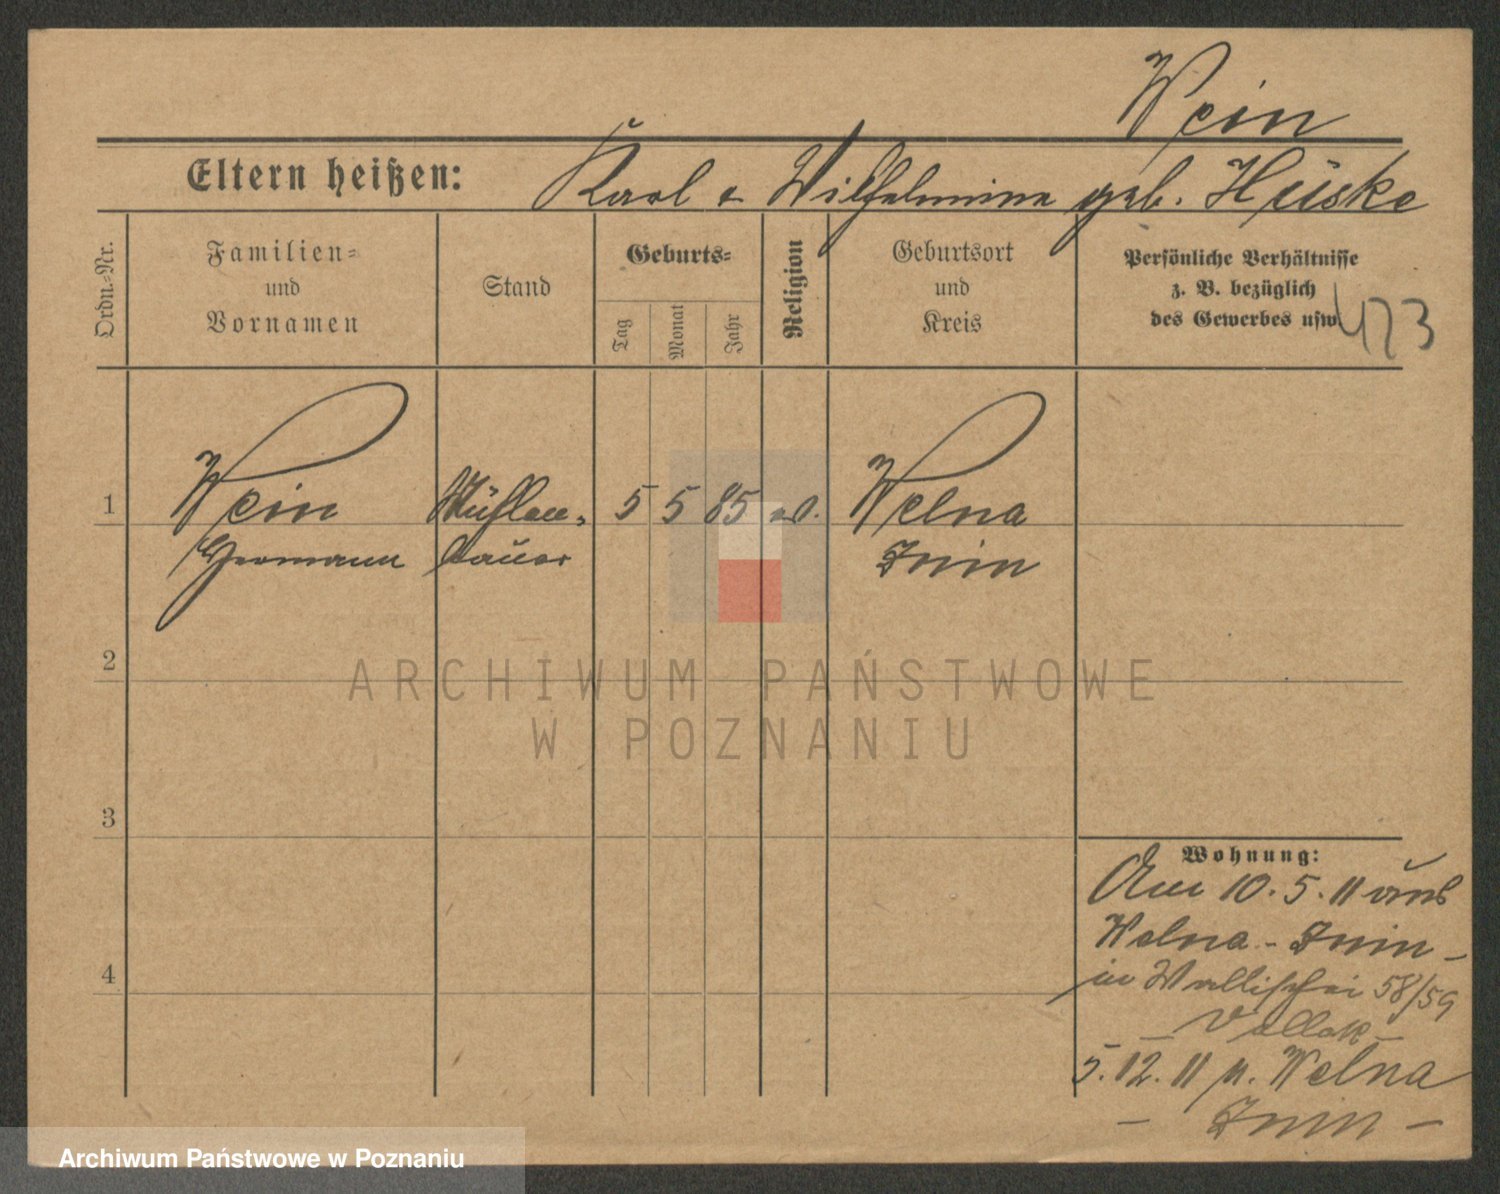 Wein
Eltern heißen: Karl u Wilhelmine geb. Hüske
Ordn.-Nr.
Familien-
und
Vornamen
Stand
Geburts-
Tag
Monat
Jahr
Religion
Geburtsort
und
Kreis
Persönliche Verhältnisse
z. B. bezüglich
des Gewerbes usw.
473
1 Wein Mühlen- 5 5 85 ev. Welna
Hermann bauer Znin
2
3
4
Wohnung:
Am 10.5.11 aus
Welna - Znin -
in Wallischei 58/59
5.12.11 n. Welna
- Znin -
ARCHIWUM PAŃSTWOWE
W POZNANIU
Archiwum Państwowe w Poznaniu